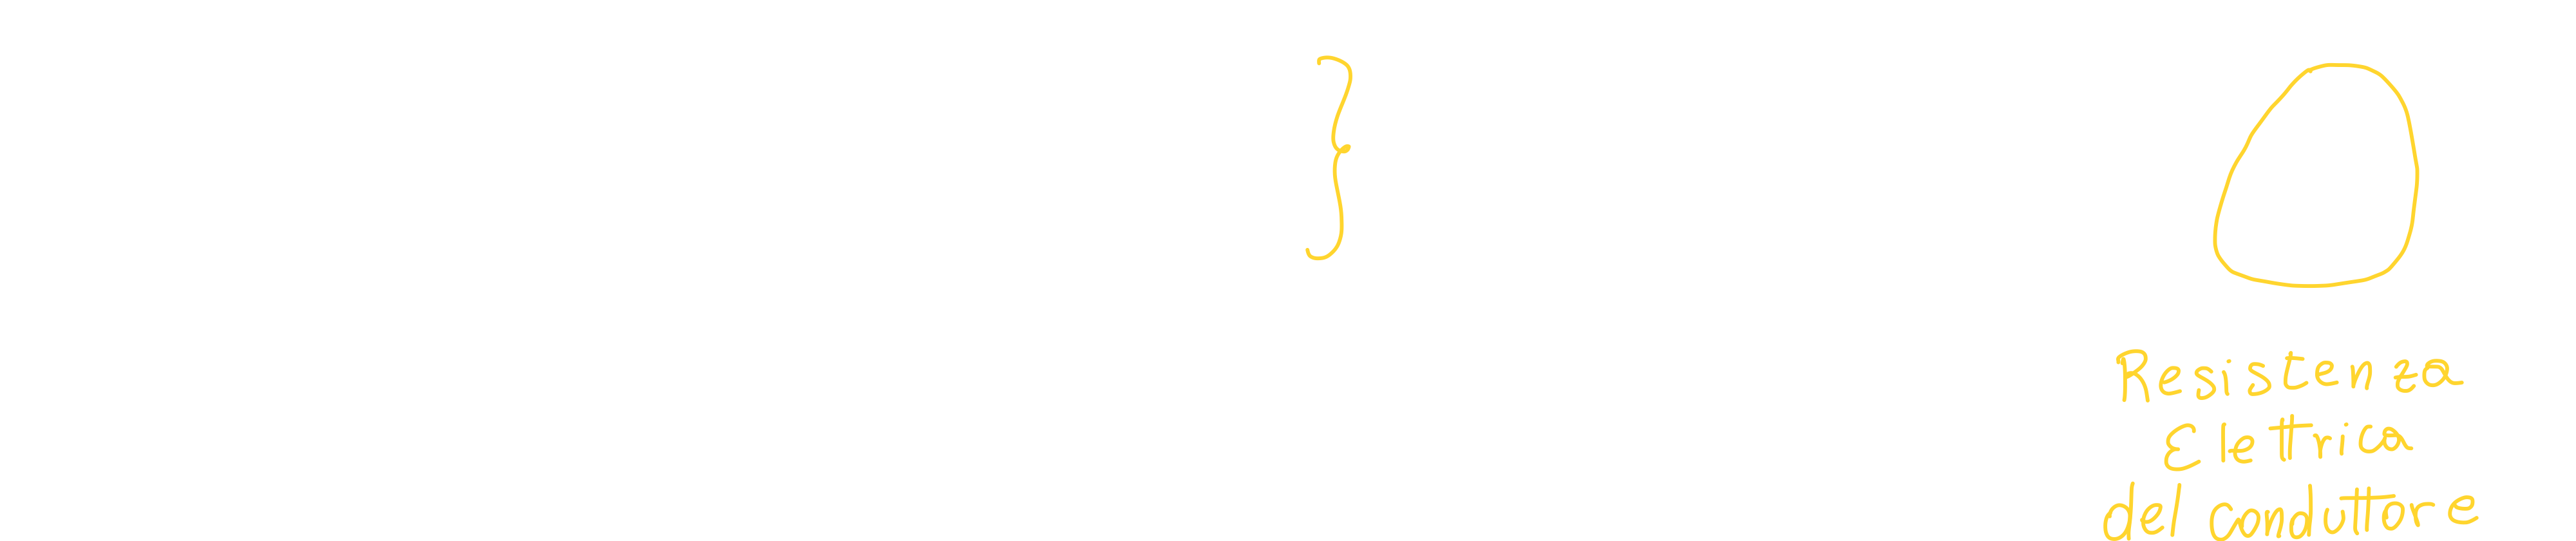 Resistenza
Elettrica
del conduttore